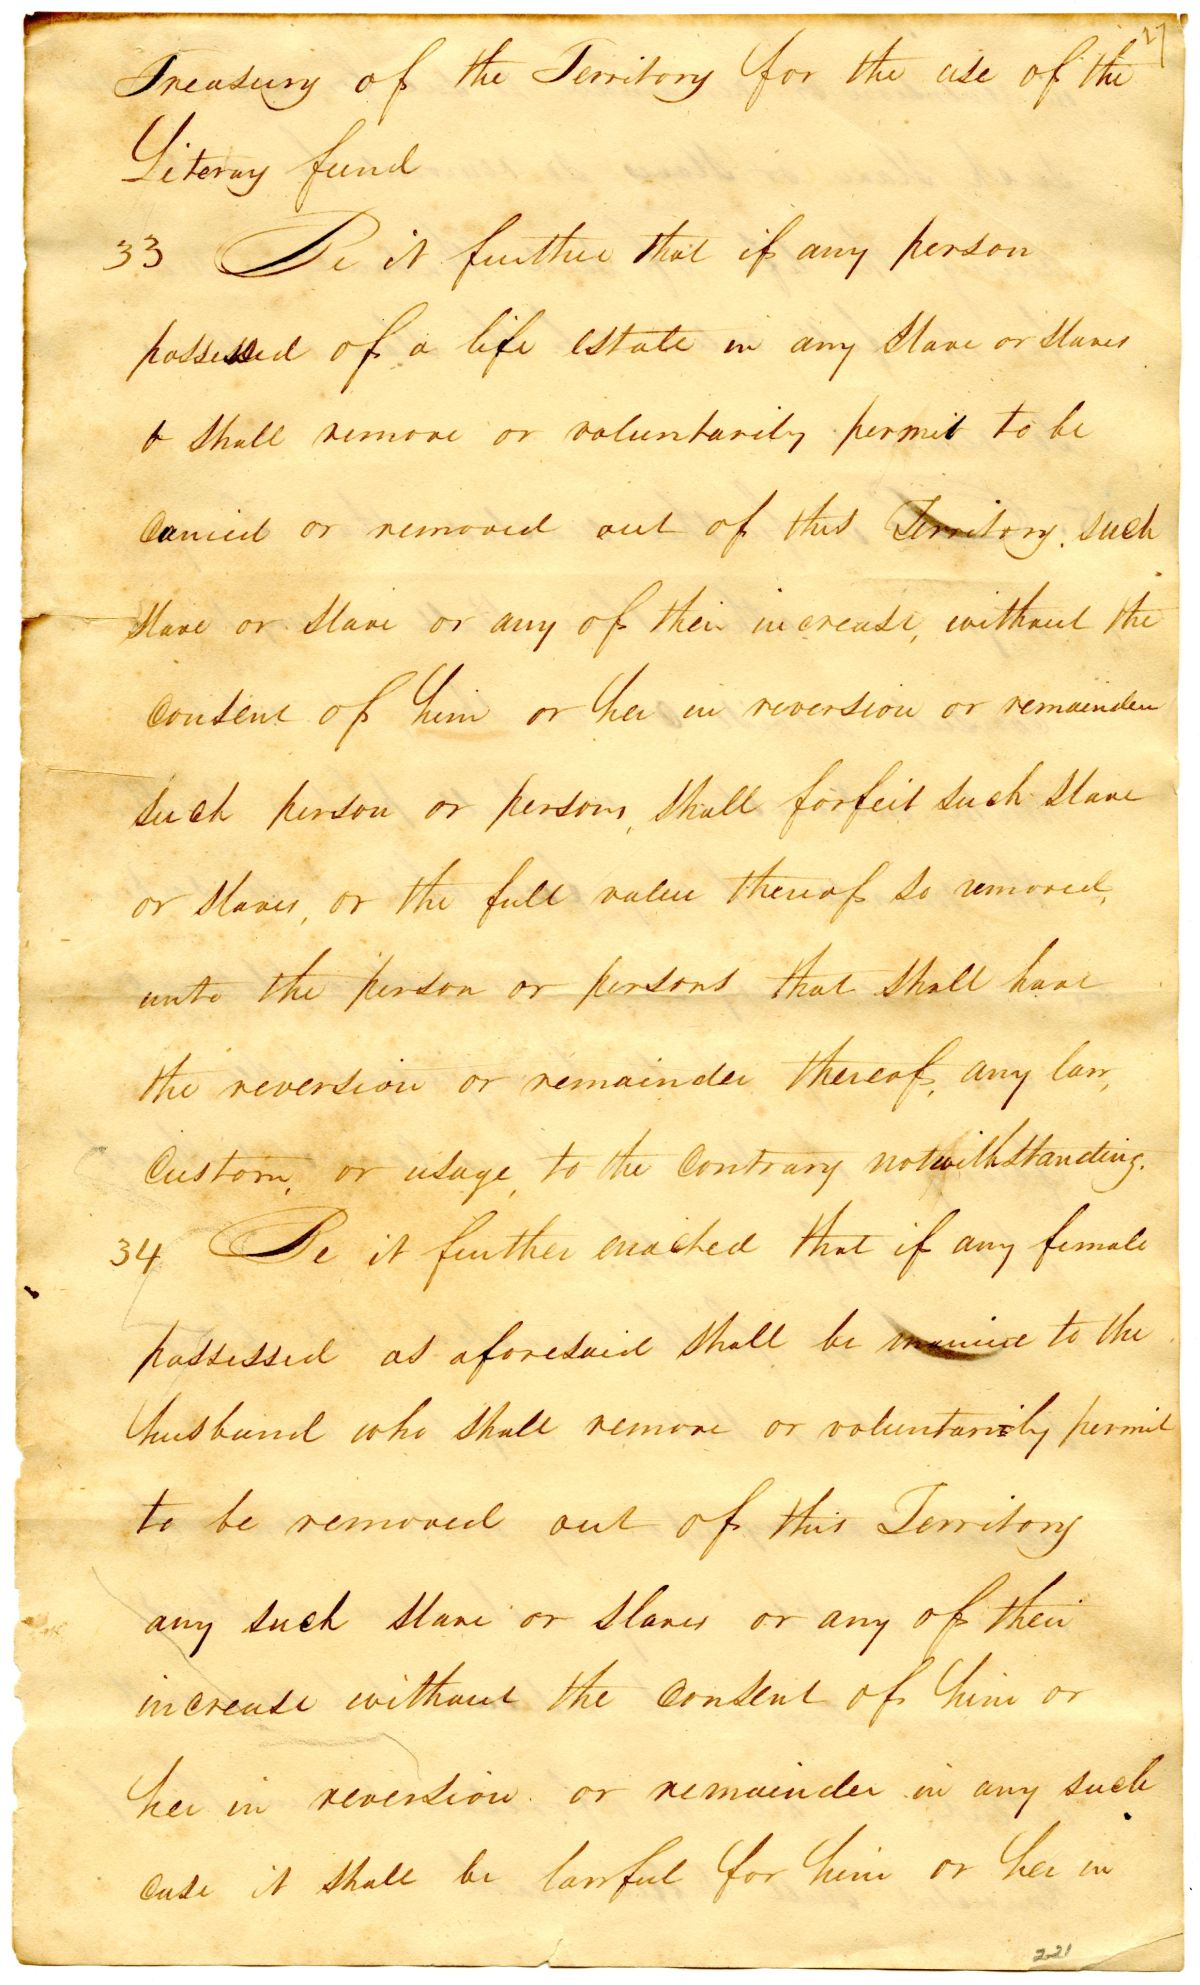 27
Treasury of the Territory for the use of the
Literay fund
33 Be it further that if any person
possessed of a life estate in any slave or slaves
shall remove or voluntarily permit to be
carried or removed out of this Territory. such
slave or slave or any of their increase, without the
consent of him or her in reversion or remainder
such person or persons, shall forfeit such slave
or slaves, or the full value thereof so removed,
unto the person or persons that shall have
the reversion or remainder thereof, any law,
custom, or usage, to the contrary notwithstanding.
34 Be it further enacted that if any female
possessed as aforesaid shall be married to the
husband who shall remove or voluntarily permit
to be removed out of this Territory
any such slave or slaves or any of their
increase without the consent of him or
her in reversion or remainder in any such
case it shall be lawful for him or her in
221